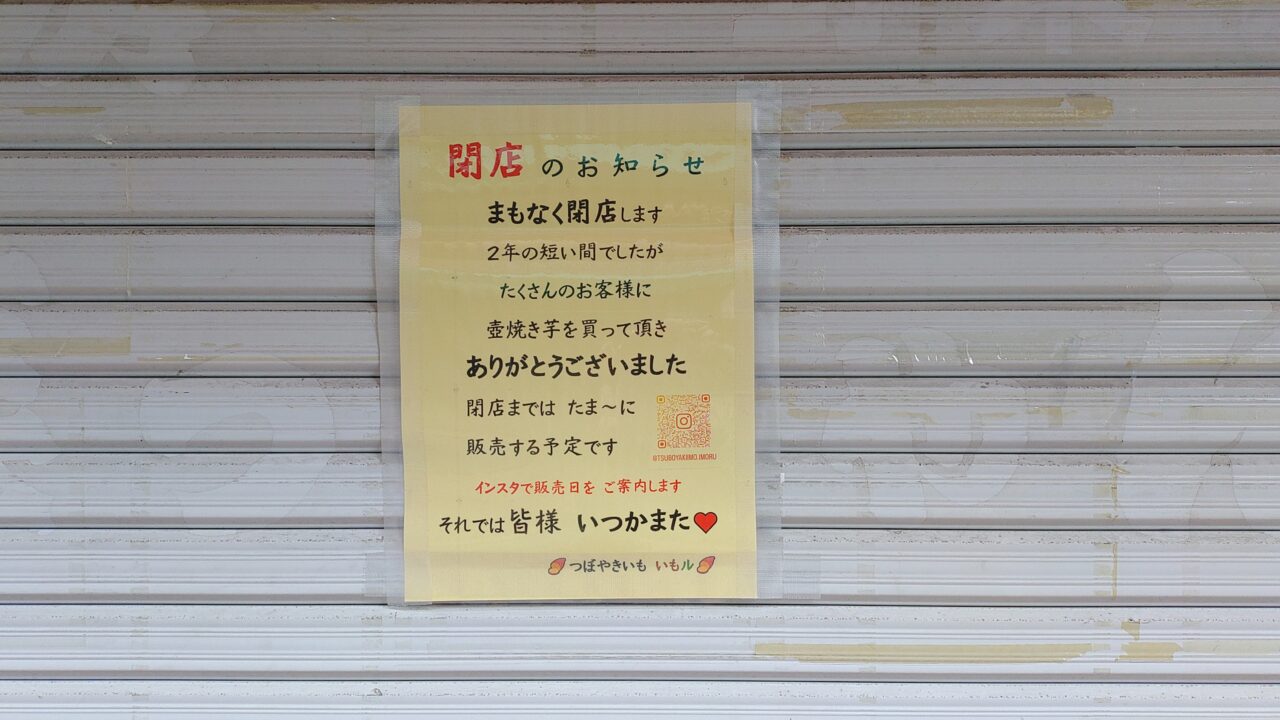 閉店のお知らせ
まもなく閉店します
2年の短い間でしたが
たくさんのお客様に
壺焼き芋を買って頂き
ありがとうございました
閉店までは たま〜に
販売する予定です
@TSUBOYAKIIMO.IMORU
インスタで販売日を ご案内します
それでは皆様 いつかまた
つぼやきいも いもル